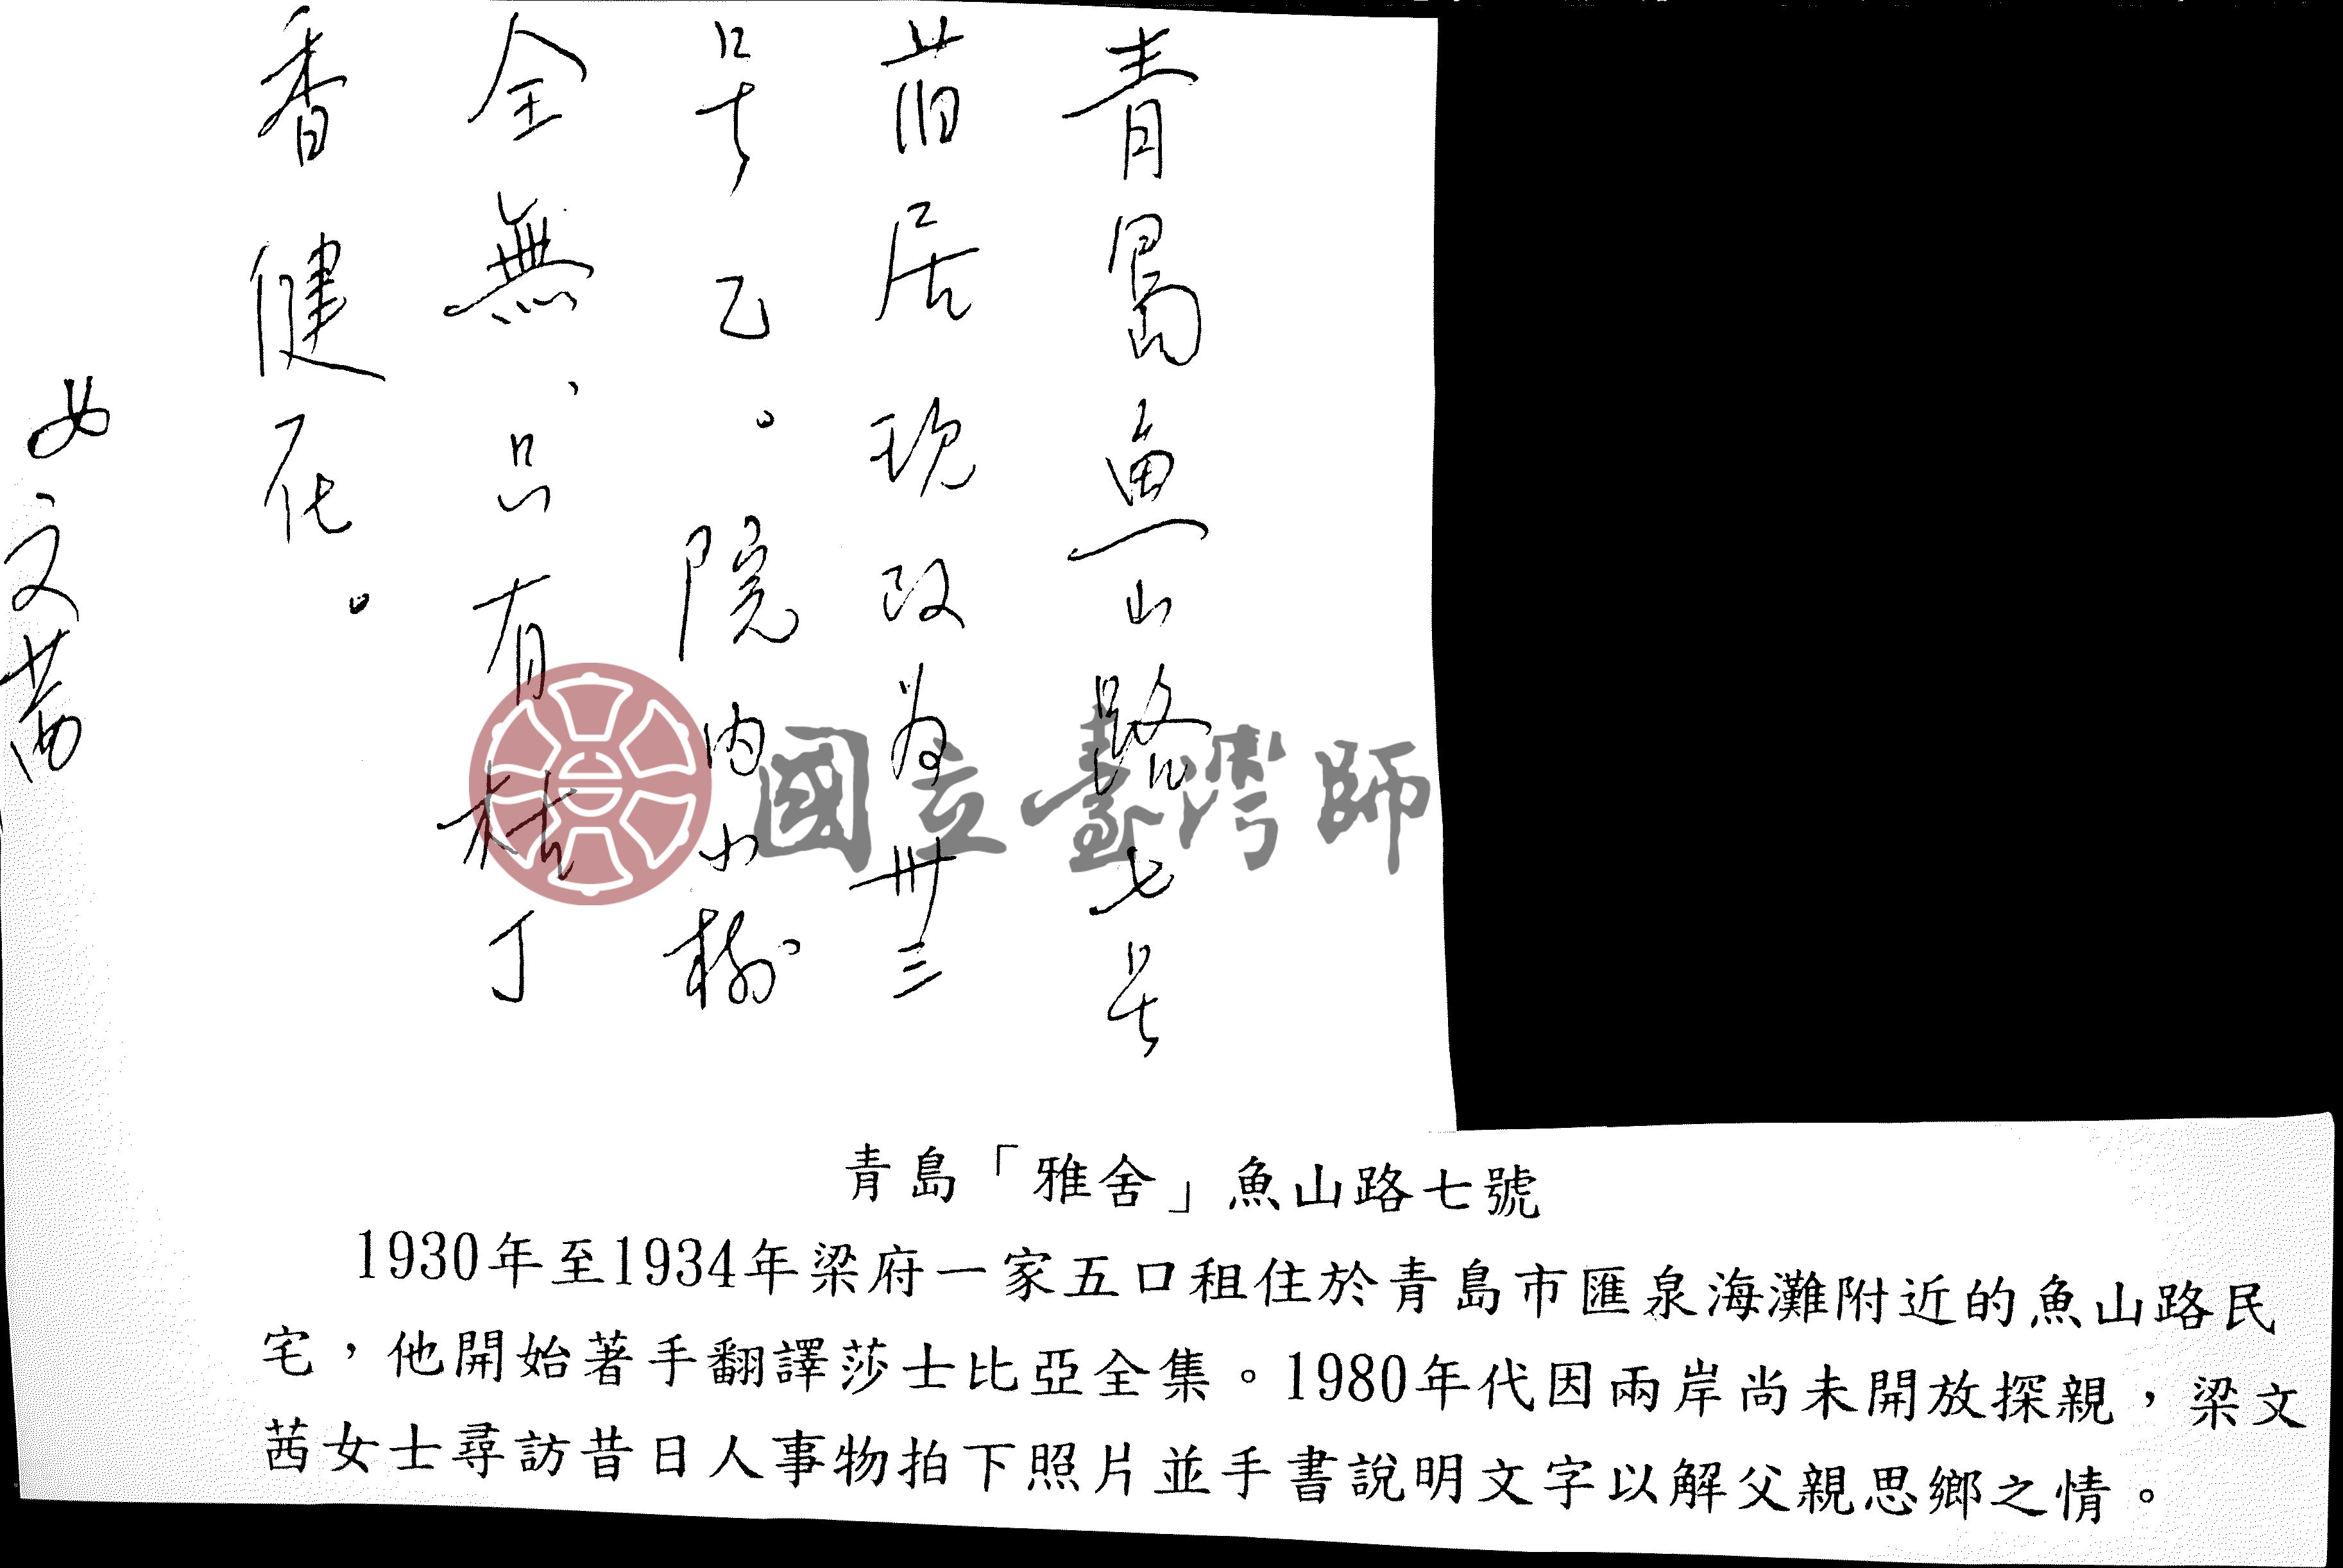 青島魚山路七号
旧居现改为卅三
号乙。院内小樹
全無、只有桂丁
香健在。
女文茜
國立臺灣師
青島「雅舍」魚山路七號
1930年至1934年梁府一家五口租住於青島市匯泉海灘附近的魚山路民
宅，他開始著手翻譯莎士比亞全集。1980年代因兩岸尚未開放探親，梁文
茜女士尋訪昔日人事物拍下照片並手書說明文字以解父親思鄉之情。